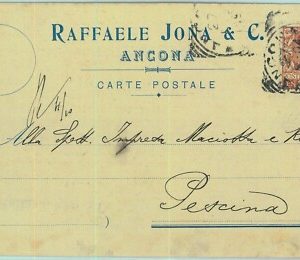 RAFFAELE JONA & C.
ANCONA
CARTE POSTALE
Alla Spett. Impresa Maciotta e
Pescina